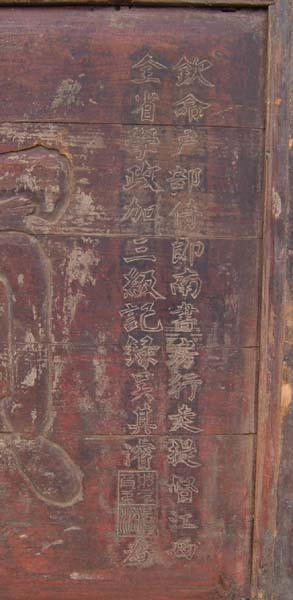 欽命戶部侍郎南書房行走提督江西
全省學政加三級記錄吳其濬